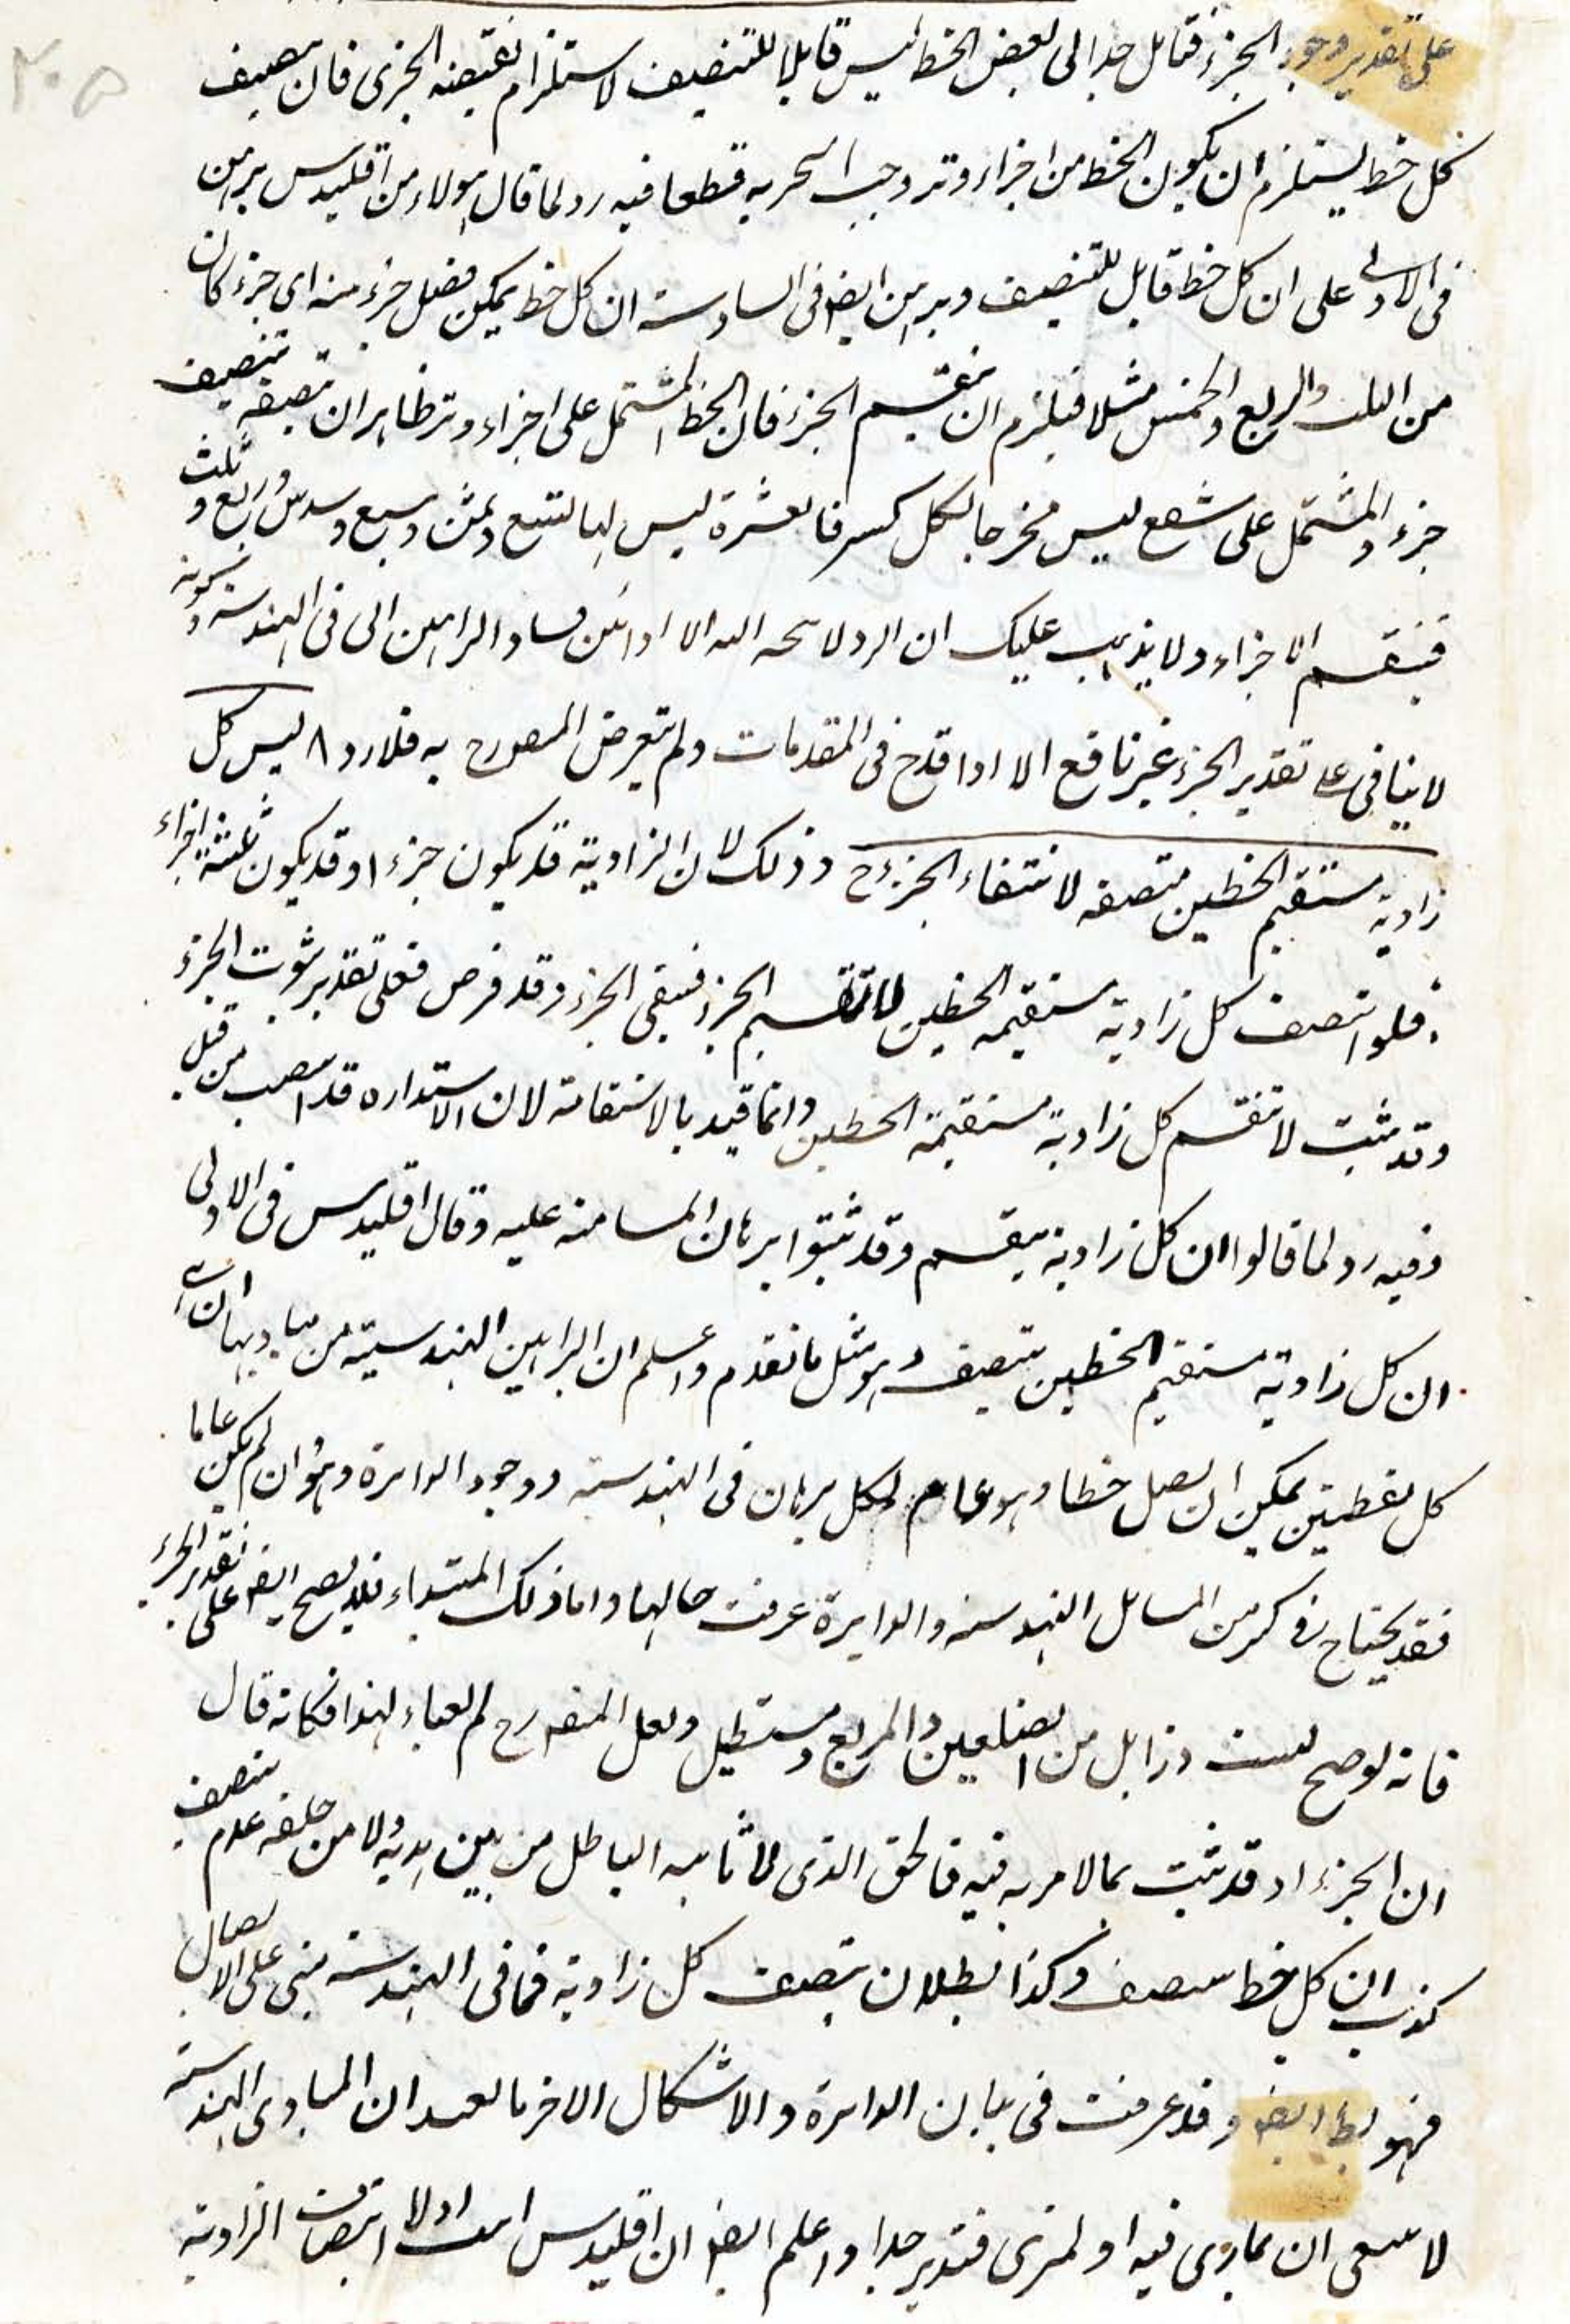 ٢٠٥
على تقدير وجود الجزء فتامل جدا لى بعض الخط ليس قابلا للتنصيف لاستلزام نقيضه الجزى فان تنصيف
كل خط يستلزم ان يكون الخط من اجزاء وتر وجب التجزية قطعا فيه رد لما قال هولاء من اقليدس برهن
فى الاولى على ان كل خط قابل للتنصيف وبرهن ايضا فى السادسة ان كل خط يمكن فصل جزء منه اى جزء كان
من الثلث والربع والخمس مثلا فيلزم ان ينقسم الجزء فان الخط المشتمل على اجزاء وتر ظاهر ان تنصيفه تنصيف
جزء والمشتمل على شفع ليس مخرجا لكل كسر فالعشرة ليس لها تسع وثمن وسبع وسدس وربع وثلث
فينقسم الاجزاء ولا يذهب عليك ان الرد لا يتجه اليه الا اذا بين فساد البراهين التى فى الهندسة و
لا ينافى على تقدير الجزء غير نافع الا اذا قدح فى المقدمات ولم يتعرض المصورح به فلا رد ٨ ليس كل
زاوية مستقيم الخطين متنصفة لانتفاء الجزء ح وذلك لان الزاوية قد يكون جزءا وقد يكون ثلثة اجزاء
فلو انتصف كل زاوية مستقيمة الخطين لانقسم الجزء فينفى الجزء وقد فرض فعلى تقدير ثبوت الجزء
وقد ثبت لا تنقسم كل زاوية مستقيمة الخطين وانما قيد بالاستقامة لان الاستداره قد من قبل
وفيه رد لما قالوا ان كل زاوية ينقسم وقد ثبتوا برهان المسامته عليه وقال اقليدس فى الاولى
ان كل زاوية مستقيم الخطين يتنصف وهو مثل ما تقدم واعلم ان البراهين الهندسية من مباديها ان
كل نقطتين يمكن ان يصل خطا وهو عام لكل برهان فى الهندسة ووجود الدائرة وهو وان لم يكن عاما
فقد يحتاج فى كثير من المسائل الهندسة والدايرة عرفت حالها واما ذلك المبتداء فلا يصح ايضا على تقدير الجزء
فانه لو صح من الضلعين والمربع ومستطيل ولعل المصورح لم يعباء لهذا فكانه قال
ان الجزء اذ قد ثبت بما لا مرية فيه فالحق الذى لا ياتيه الباطل من بين يديه ولا من خلفه عدم تنصف
كذب ان كل خط يتنصف وكذا بطلان تنصف كل زاوية فما فى الهندسة مبنى على الاتصال
فهو بط ايضا وقد عرفت فى بيان الدائرة والاشكال الاخر ما يفيد ان المبادى الهندسة
لا ينبغى ان يمارى فيه او يمترى فتدبر جدا واعلم ايضا ان اقليدس اثبت اولا انتصاف الزاوية